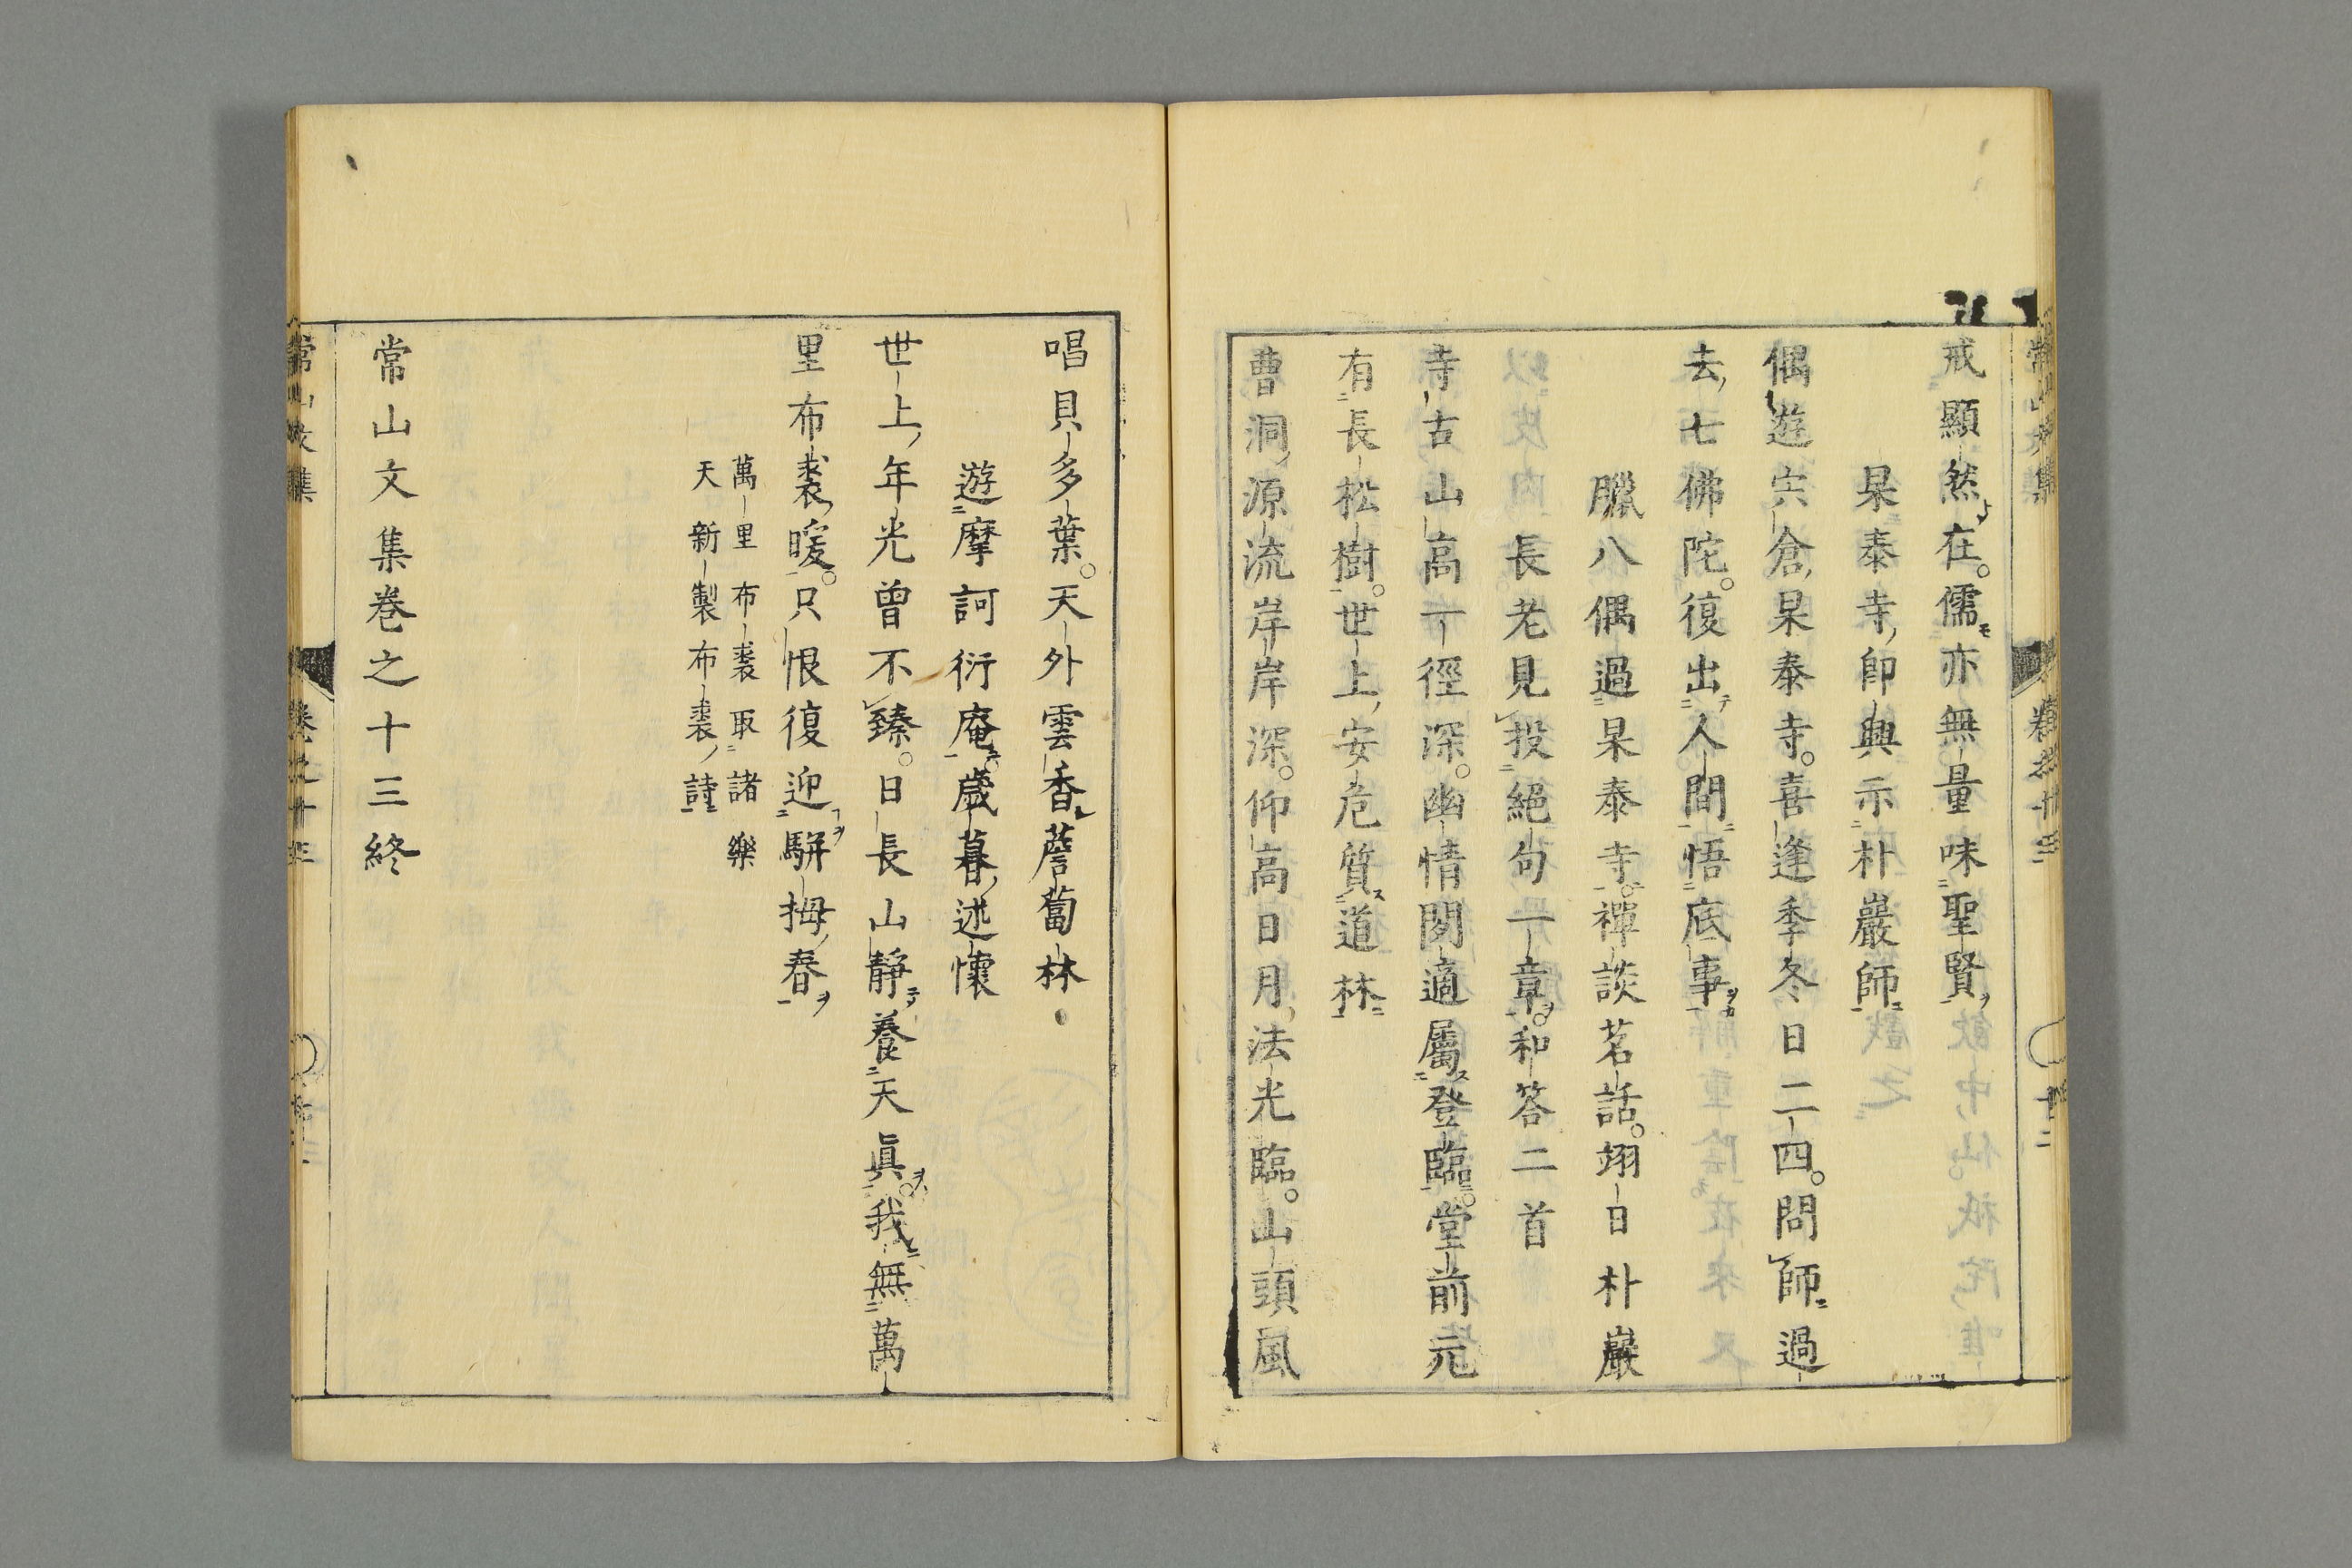 戒顯然在。儒亦無量味聖賢
杲泰寺卽興示朴巖師
偶遊宍倉杲泰寺。喜逢季冬日二四。問師過
去七佛陀。復出人間悟底事
臘八偶過杲泰寺。禪談茗話。翊日朴巖
長老見投絕句一章。和答二首
寺古山高一徑深。幽情閒適屬登臨。堂前元
有長松樹。世上安危質道林
曹洞源流岸岸深。仰高日月法光臨。山頭風
唱貝多葉。天外雲香薝蔔林
遊摩訶衍庵。歲暮述懷
世上年光曾不臻。日長山靜養天眞。我無萬
里布裘暖。只恨復迎駢拇春
萬里布裘取諸樂
天新製布裘詩
常山文集卷之十三終
常山文集
卷之十三